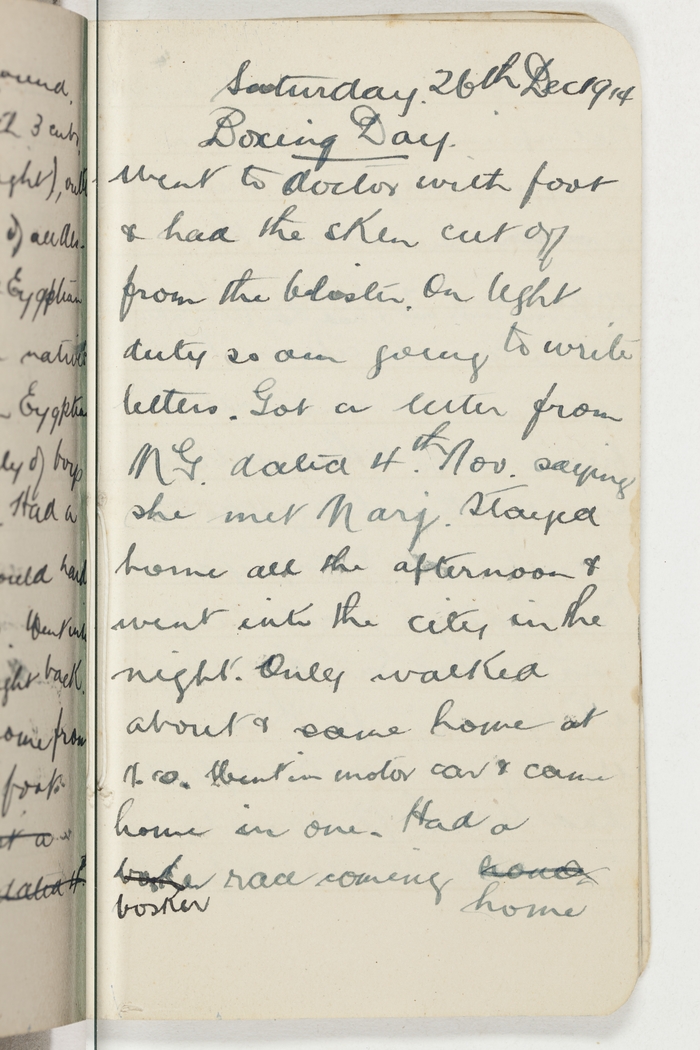 ound.
3 cuts
ght), out
of
Eygptian
native
Eygptian
ly of boys
Had a
ould hard
Went in
ght back.
ome from
foot
t a
dated 4th
Saturday. 26th Dec 1914
Boxing Day.
Went to doctor with foot
& had the skin cut off
from the blister. On light
duty so am going to write
letters. Got a letter from
N.G. dated 4.th Nov. saying
she met Marj. Stayed
home all the afternoon &
went into the city in the
night. Only walked
about & came home at
Went in motor car & came
home in one. Had a
bosker race coming
bosker home